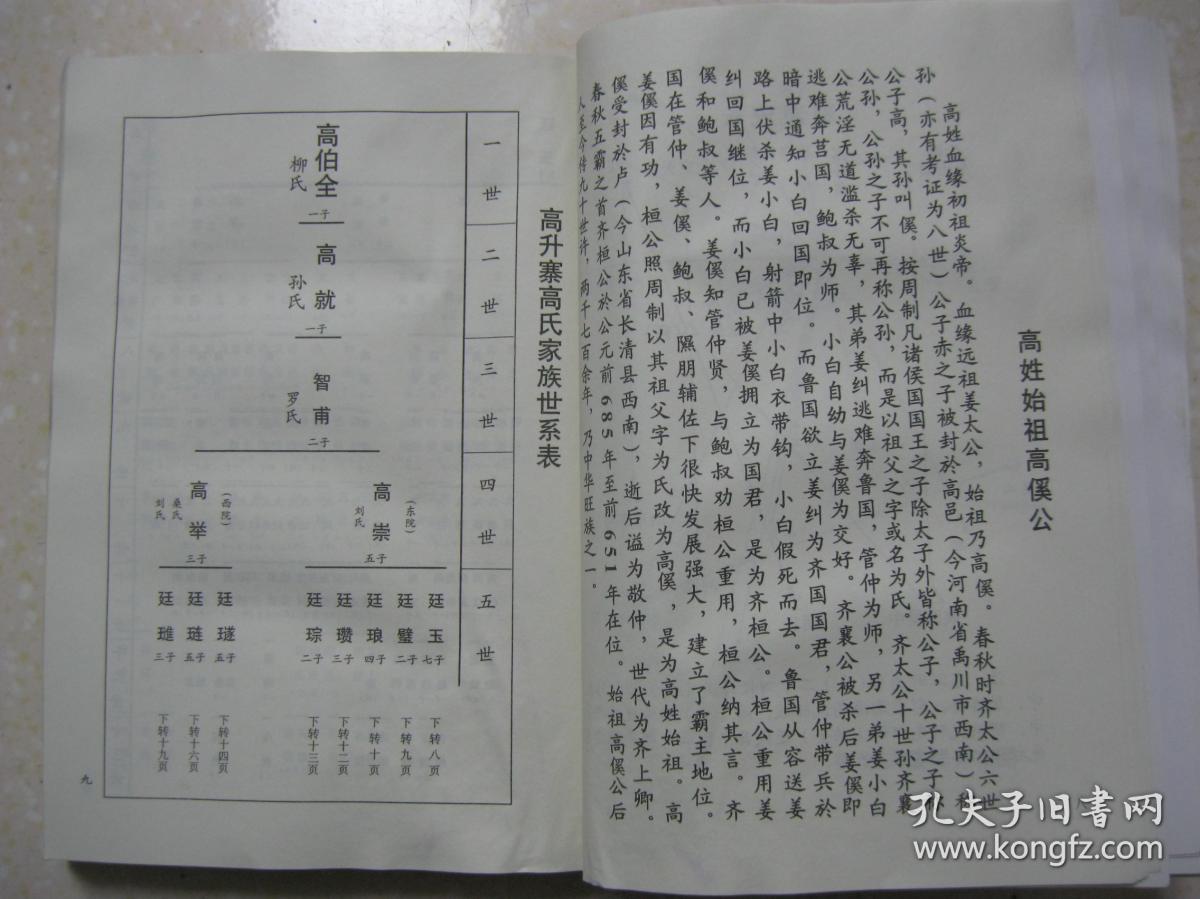 高姓始祖高傒公
高姓血缘初祖炎帝。血缘远祖姜太公，始祖乃高傒。春秋时齐太公六世
孙（亦有考证为八世）公子赤之子被封於高邑（今河南省禹川市西南）称
公子高，其孙叫傒。按周制凡诸侯国国王之子除太子外皆称公子，公子之子称
公孙，公孙之子不可再称公孙，而是以祖父之字或名为氏。齐太公十世孙齐襄
公荒淫无道滥杀无辜，其弟姜纠逃难奔鲁国，管仲为师，另一弟姜小白
逃难奔莒国，鲍叔为师。小白自幼与姜傒为交好。齐襄公被杀后姜傒即
暗中通知小白回国即位。而鲁国欲立姜纠为齐国国君，管仲带兵於
路上伏杀姜小白，射箭中小白衣带钩，小白假死而去。鲁国从容送姜
纠回国继位，而小白已被姜傒拥立为国君，是为齐桓公。桓公重用姜
傒和鲍叔等人。姜傒知管仲贤，与鲍叔劝桓公重用，桓公纳其言。齐
国在管仲、姜傒、鲍叔、隰朋辅佐下很快发展强大，建立了霸主地位。
姜傒因有功，桓公照周制以其祖父字为氏改为高傒，是为高姓始祖。高
傒受封於卢（今山东省长清县西南），逝后谥为敬仲，世代为齐上卿。
春秋五霸之首齐桓公於公元前685年至前651年在位。始祖高傒公后
人至今传九十世许，两千七百余年，乃中华旺族之一。
高升寨高氏家族世系表
一世
二世
三世
四世
五世
高伯全
柳氏
一子
高就
孙氏
一子
智甫
罗氏
二子
（东院）
高崇
刘氏
五子
（西院）
高举
桑氏
刘氏
三子
廷玉
七子
下转八页
廷璧
二子
下转九页
廷琅
四子
下转十一页
廷瓒
三子
下转十二页
廷琮
二子
下转十三页
廷璲
五子
下转十四页
廷琏
五子
下转十六页
廷
三子
下转十九页
九
孔夫子旧书网
www.kongfz.com